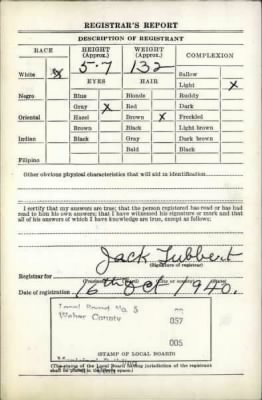 REGISTRAR'S REPORT
DESCRIPTION OF REGISTRANT
RACE HEIGHT (Approx.) WEIGHT (Approx.) COMPLEXION
5-7 132 Sallow
White X EYES HAIR Light X
Negro Blue Blonde Ruddy
Gray X Red Dark
Oriental Hazel Brown X Freckled
Brown Black Light brown
Indian Black Gray Dark brown
Bald Black
Filipino
Other obvious physical characteristics that will aid in identification
I certify that my answers are true; that the person registered has read or has had
read to him his own answers; that I have witnessed his signature or mark and that
all of his answers of which I have knowledge are true, except as follows:
Jack Tubbert
(Signature of registrar)
Registrar for
Date of registration 16th Oct 1940.
Local Board No. 5
Weber County 057
005
(STAMP OF LOCAL BOARD)
(The stamp of the Local Board having jurisdiction of the registrant
shall be placed in the above space.)